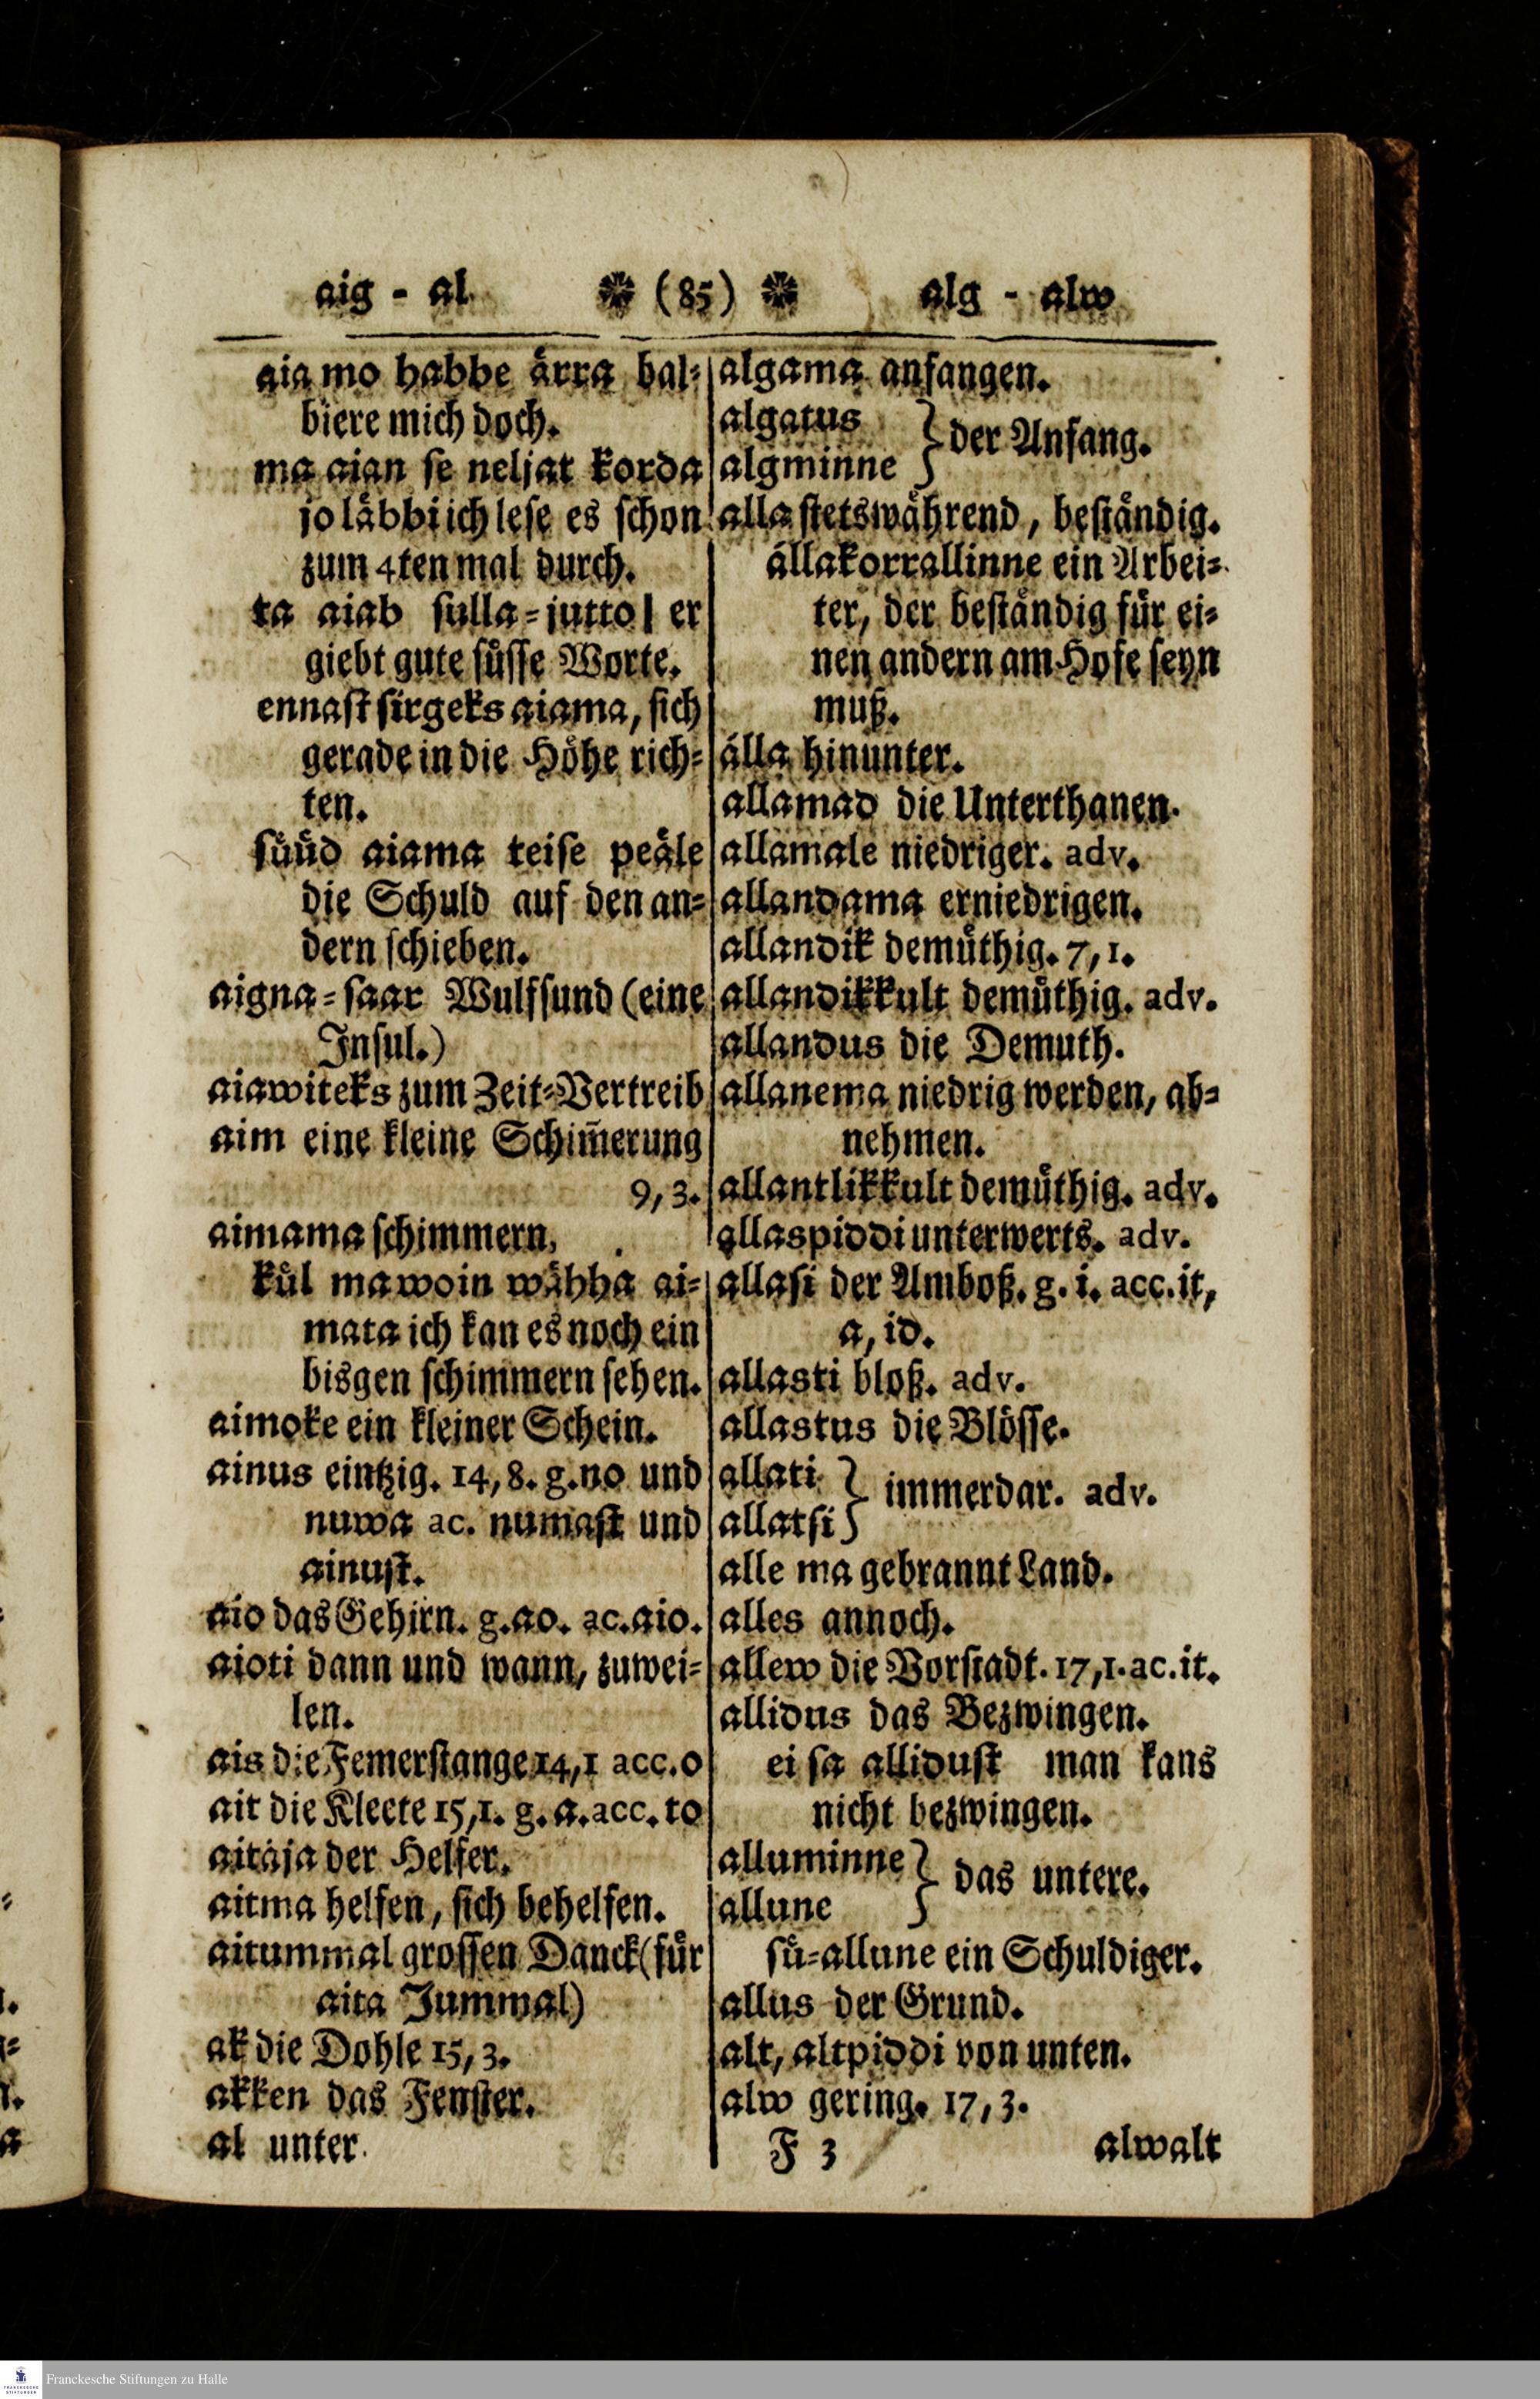 aig - al
(85)
alg - alw
aia mo habbe ärra bal-
biere mich doch.
ma aian se neljat korda
jo läbbi ich lese es schon
zum 4ten mal durch.
ta aiab sulla-jutto | er
giebt gute süsse Worte.
ennast sirgeks aiama, sich
gerade in die Höhe rich-
ten.
süüd aiama teise peäle
die Schuld auf den an-
dern schieben.
aigna-saar Wulfsund (eine
Insul.)
aiawiteks zum Zeit-Vertreib
aim eine kleine Schim̃erung
9, 3.
aimama schimmern,
kül ma woin wähha ai-
mata ich kan es noch ein
bisgen schimmern sehen.
aimoke ein kleiner Schein.
ainus eintzig. 14, 8. g. no und
nuwa ac. numast und
ainust.
aio das Gehirn. g. ao. ac. aio.
aioti dann und wann, zuwei-
len.
ais die Femerstange 14, 1 acc. o
ait die Kleete 15, 1. g. a. acc. to
aitäja der Helfer.
aitma helfen, sich behelfen.
aitummal grossen Danck (für
aita Jummal)
ak die Dohle 15, 3.
akken das Fenster.
al unter
algama anfangen.
algatus
algminne } der Anfang.
alla stetswährend, beständig.
állakorrallinne ein Arbei-
ter, der beständig für ei-
nen andern am Hofe seyn
muß.
álla hinunter.
allamad die Unterthanen.
allamale niedriger. adv.
allandama erniedrigen.
allandik demüthig. 7, 1.
allandikkult demüthig. adv.
allandus die Demuth.
allanema niedrig werden, ab-
nehmen.
allantlikkult demüthig. adv.
allaspiddi unterwerts. adv.
allasi der Amboß. g. i. acc. it,
a, id.
allasti bloß. adv.
allastus die Blösse.
allati
allatsi } immerdar. adv.
alle ma gebrannt Land.
alles annoch.
allew die Vorstadt. 17, 1. ac. it.
allidus das Bezwingen.
ei sa allidust man kans
nicht bezwingen.
alluminne
allune } das untere.
sü-allune ein Schuldiger.
allus der Grund.
alt, altpiddi von unten.
alw gering. 17, 3.
F 3
alwalt
Franckesche Stiftungen zu Halle